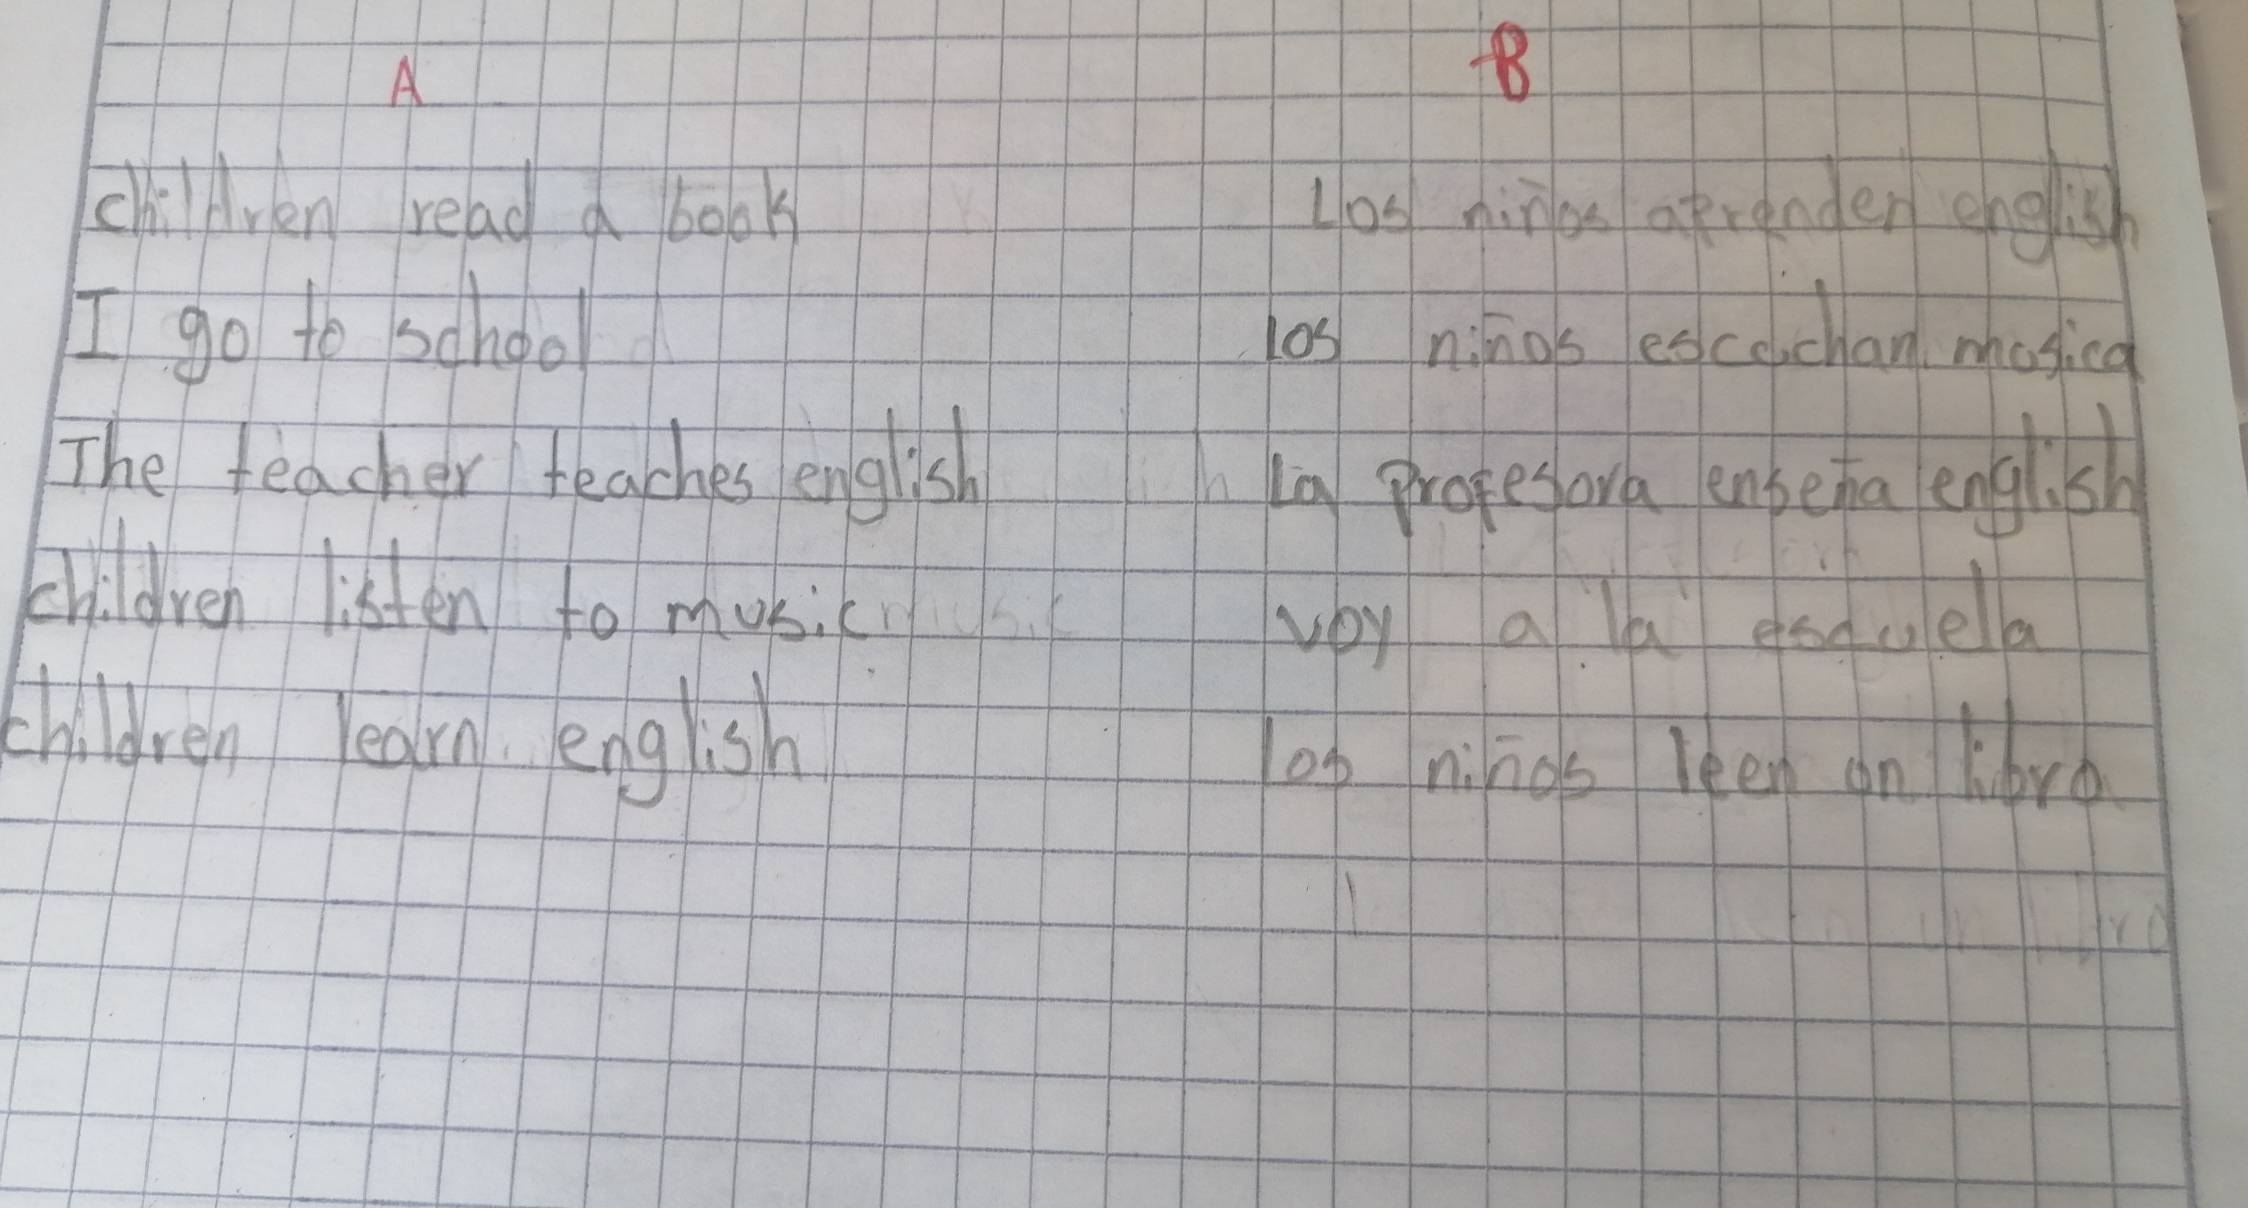 A
B
children read a book
Los niños aprenden english
I go to school
los niños escuchan musica
The teacher teaches english
La profesora enseña english
children listen to music
voy a la esquela
children learn english
los niños leen un libro